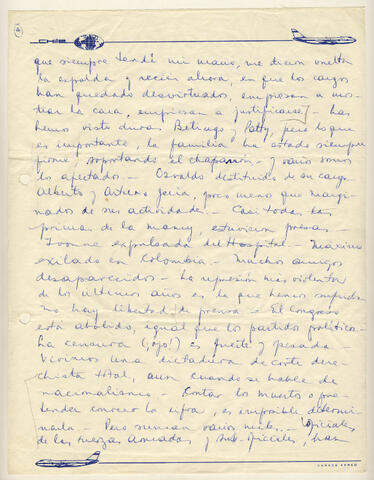 que siempre tendí mi mano, me dieron vuelta
la espalda y recién ahora, en que los cargos
han quedado desvirtuados, empiezan a mos-
trar la cara, empiezan a justificarse, las
hemos visto duras Betingo y Patty, pero lo que
es importante, la familia ha estado siempre
firme, soportando el chaparrón - y varios somos
los afectados - Osvaldo destituido de su cargo
Alberto y Arturo Jeria, poco menos que margi-
nados de sus actividades - Casi todas las
primas de la Mancy, estuvieron presas -
Ivonne expulsada del Hospital - Maximo
exilado en Kolombia - Muchos amigos
desaparecidos - La represión más violenta
de los últimos años es la que hemos sufrido
no hay libertad de prensa - El Congreso
está abolido, igual que los partidos políticos -
La censura (¡ojo!) es fuerte y pesada
Vivimos una dictadura de corte dere-
chista total, aun cuando se hable de
nacionalismo - Contar los muertos o pre-
tender conocer la cifra, es imposible determi-
narla - Pero suman varios miles - Oficiales
de las Fuerzas Armadas y Sub-Oficiales, han
CORREO AEREO